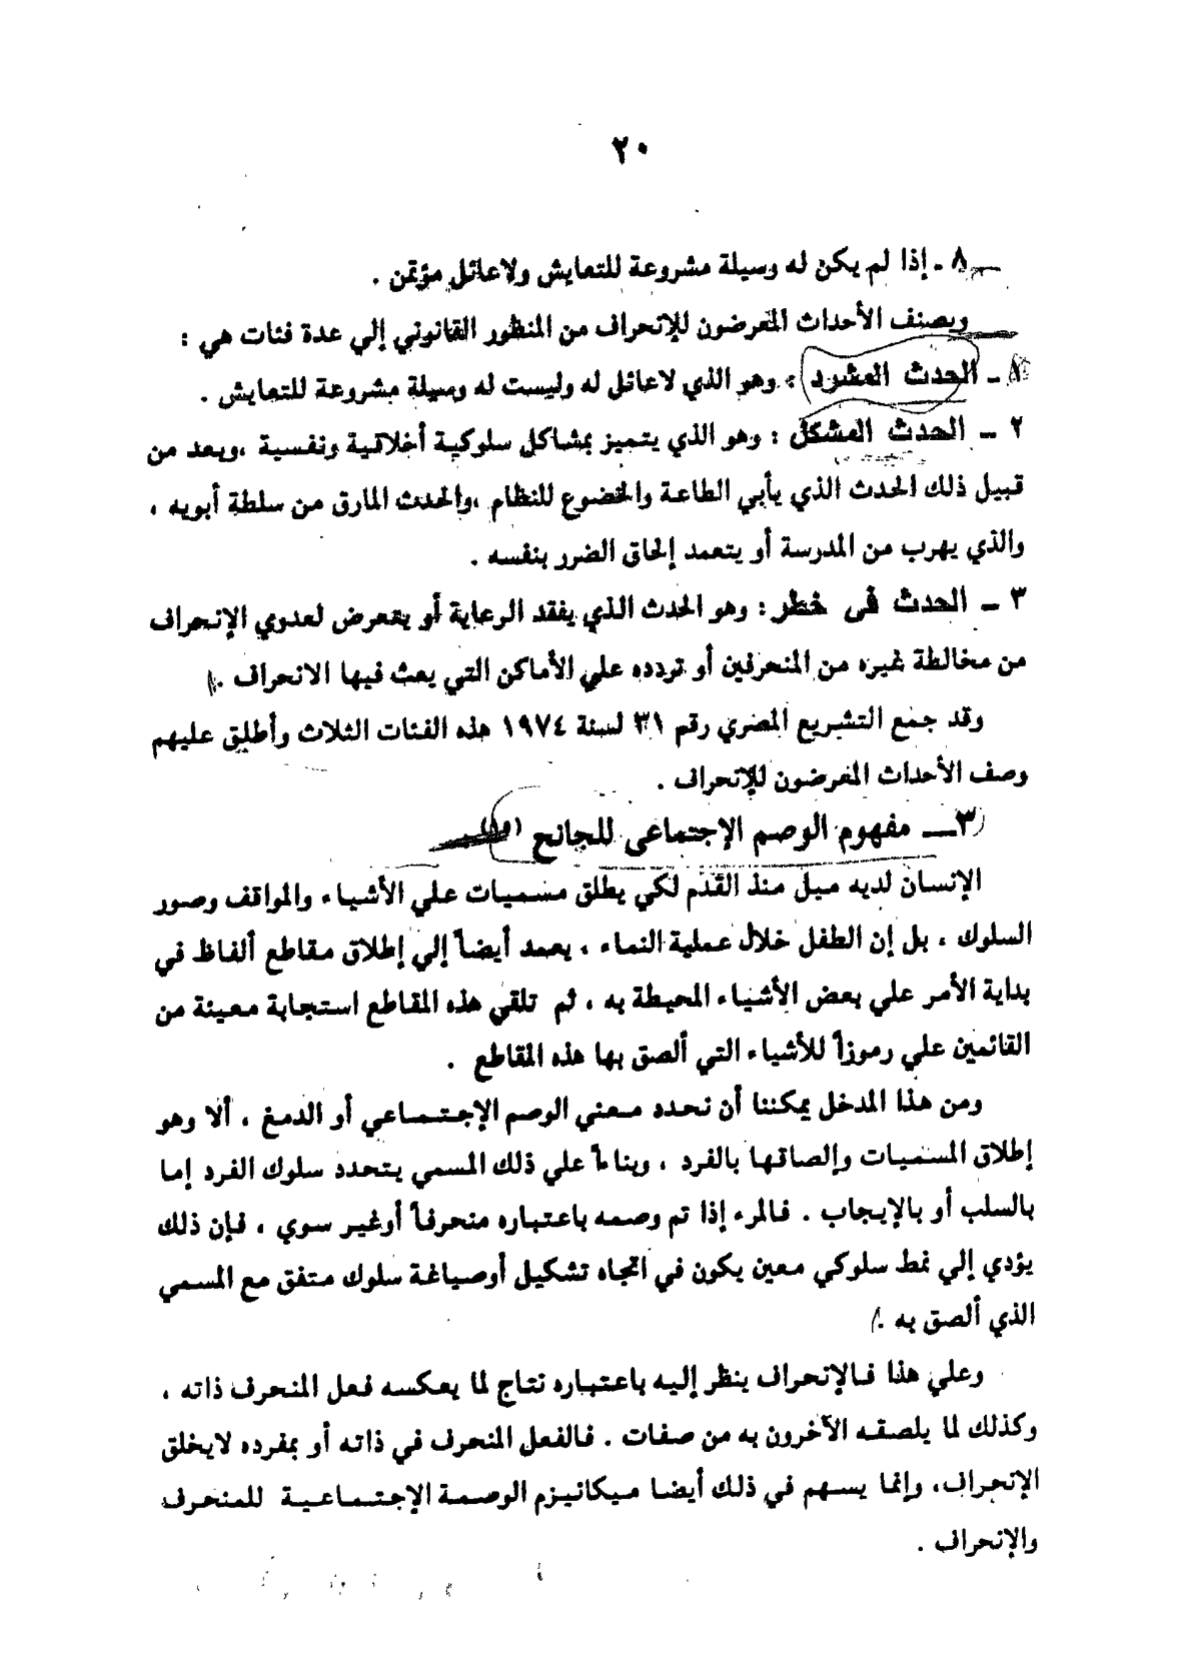 ٢٠
٨ ـ إذا لم يكن له وسيلة مشروعة للتعايش ولاعائل مؤتمن .
ويصنف الأحداث المعرضون للإنحراف من المنظور القانوني إلي عدة فئات هي :
١ ـ الحدث المشرد : وهو الذي لاعائل له وليست له وسيلة مشروعة للتعايش .
٢ ـ الحدث المشكل : وهو الذي يتميز بمشاكل سلوكية أخلاقية ونفسية ،ويعد من
قبيل ذلك الحدث الذي يأبي الطاعة والخضوع للنظام ،والحدث المارق من سلطة أبويه ،
والذي يهرب من المدرسة أو يتعمد إلحاق الضرر بنفسه .
٣ ـ الحدث فى خطر : وهو الحدث الذي يفقد الرعاية أو يتعرض لعدوي الإنحراف
من مخالطة غيره من المنحرفين أو تردده علي الأماكن التي يعث فيها الانحراف .
وقد جمع التشريع المصري رقم ٣١ لسنة ١٩٧٤ هذه الفئات الثلاث وأطلق عليهم
وصف الأحداث المعرضون للإنحراف .
٣ـــ مفهوم الوصم الإجتماعى للجانح (١٥)
الإنسان لديه ميل منذ القدم لكي يطلق مسميات علي الأشياء والمواقف وصور
السلوك ، بل إن الطفل خلال عملية النماء ، يعمد أيضاً إلي إطلاق مقاطع ألفاظ في
بداية الأمر علي بعض الأشياء المحيطة به ، ثم تلقي هذه المقاطع استجابة معينة من
القائمين علي رموزاً للأشياء التي ألصق بها هذه المقاطع .
ومن هذا المدخل يمكننا أن نحدد معني الوصم الإجتماعي أو الدمغ ، ألا وهو
إطلاق المسميات وإلصاقها بالفرد ، وبناءً علي ذلك المسمي يتحدد سلوك الفرد إما
بالسلب أو بالإيجاب . فالمرء إذا تم وصمه باعتباره منحرفاً أوغير سوي ، فإن ذلك
يؤدي إلي نمط سلوكي معين يكون في اتجاه تشكيل أوصياغة سلوك متفق مع المسمي
الذي ألصق به .
وعلي هذا فالإنحراف ينظر إليه باعتباره نتاج لما يعكسه فعل المنحرف ذاته ،
وكذلك لما يلصقه الآخرون به من صفات . فالفعل المنحرف في ذاته أو بمفرده لايخلق
الإنحراف، وإنما يسهم في ذلك أيضا ميكانيزم الوصمة الإجتماعية للمنحرف
والإنحراف .